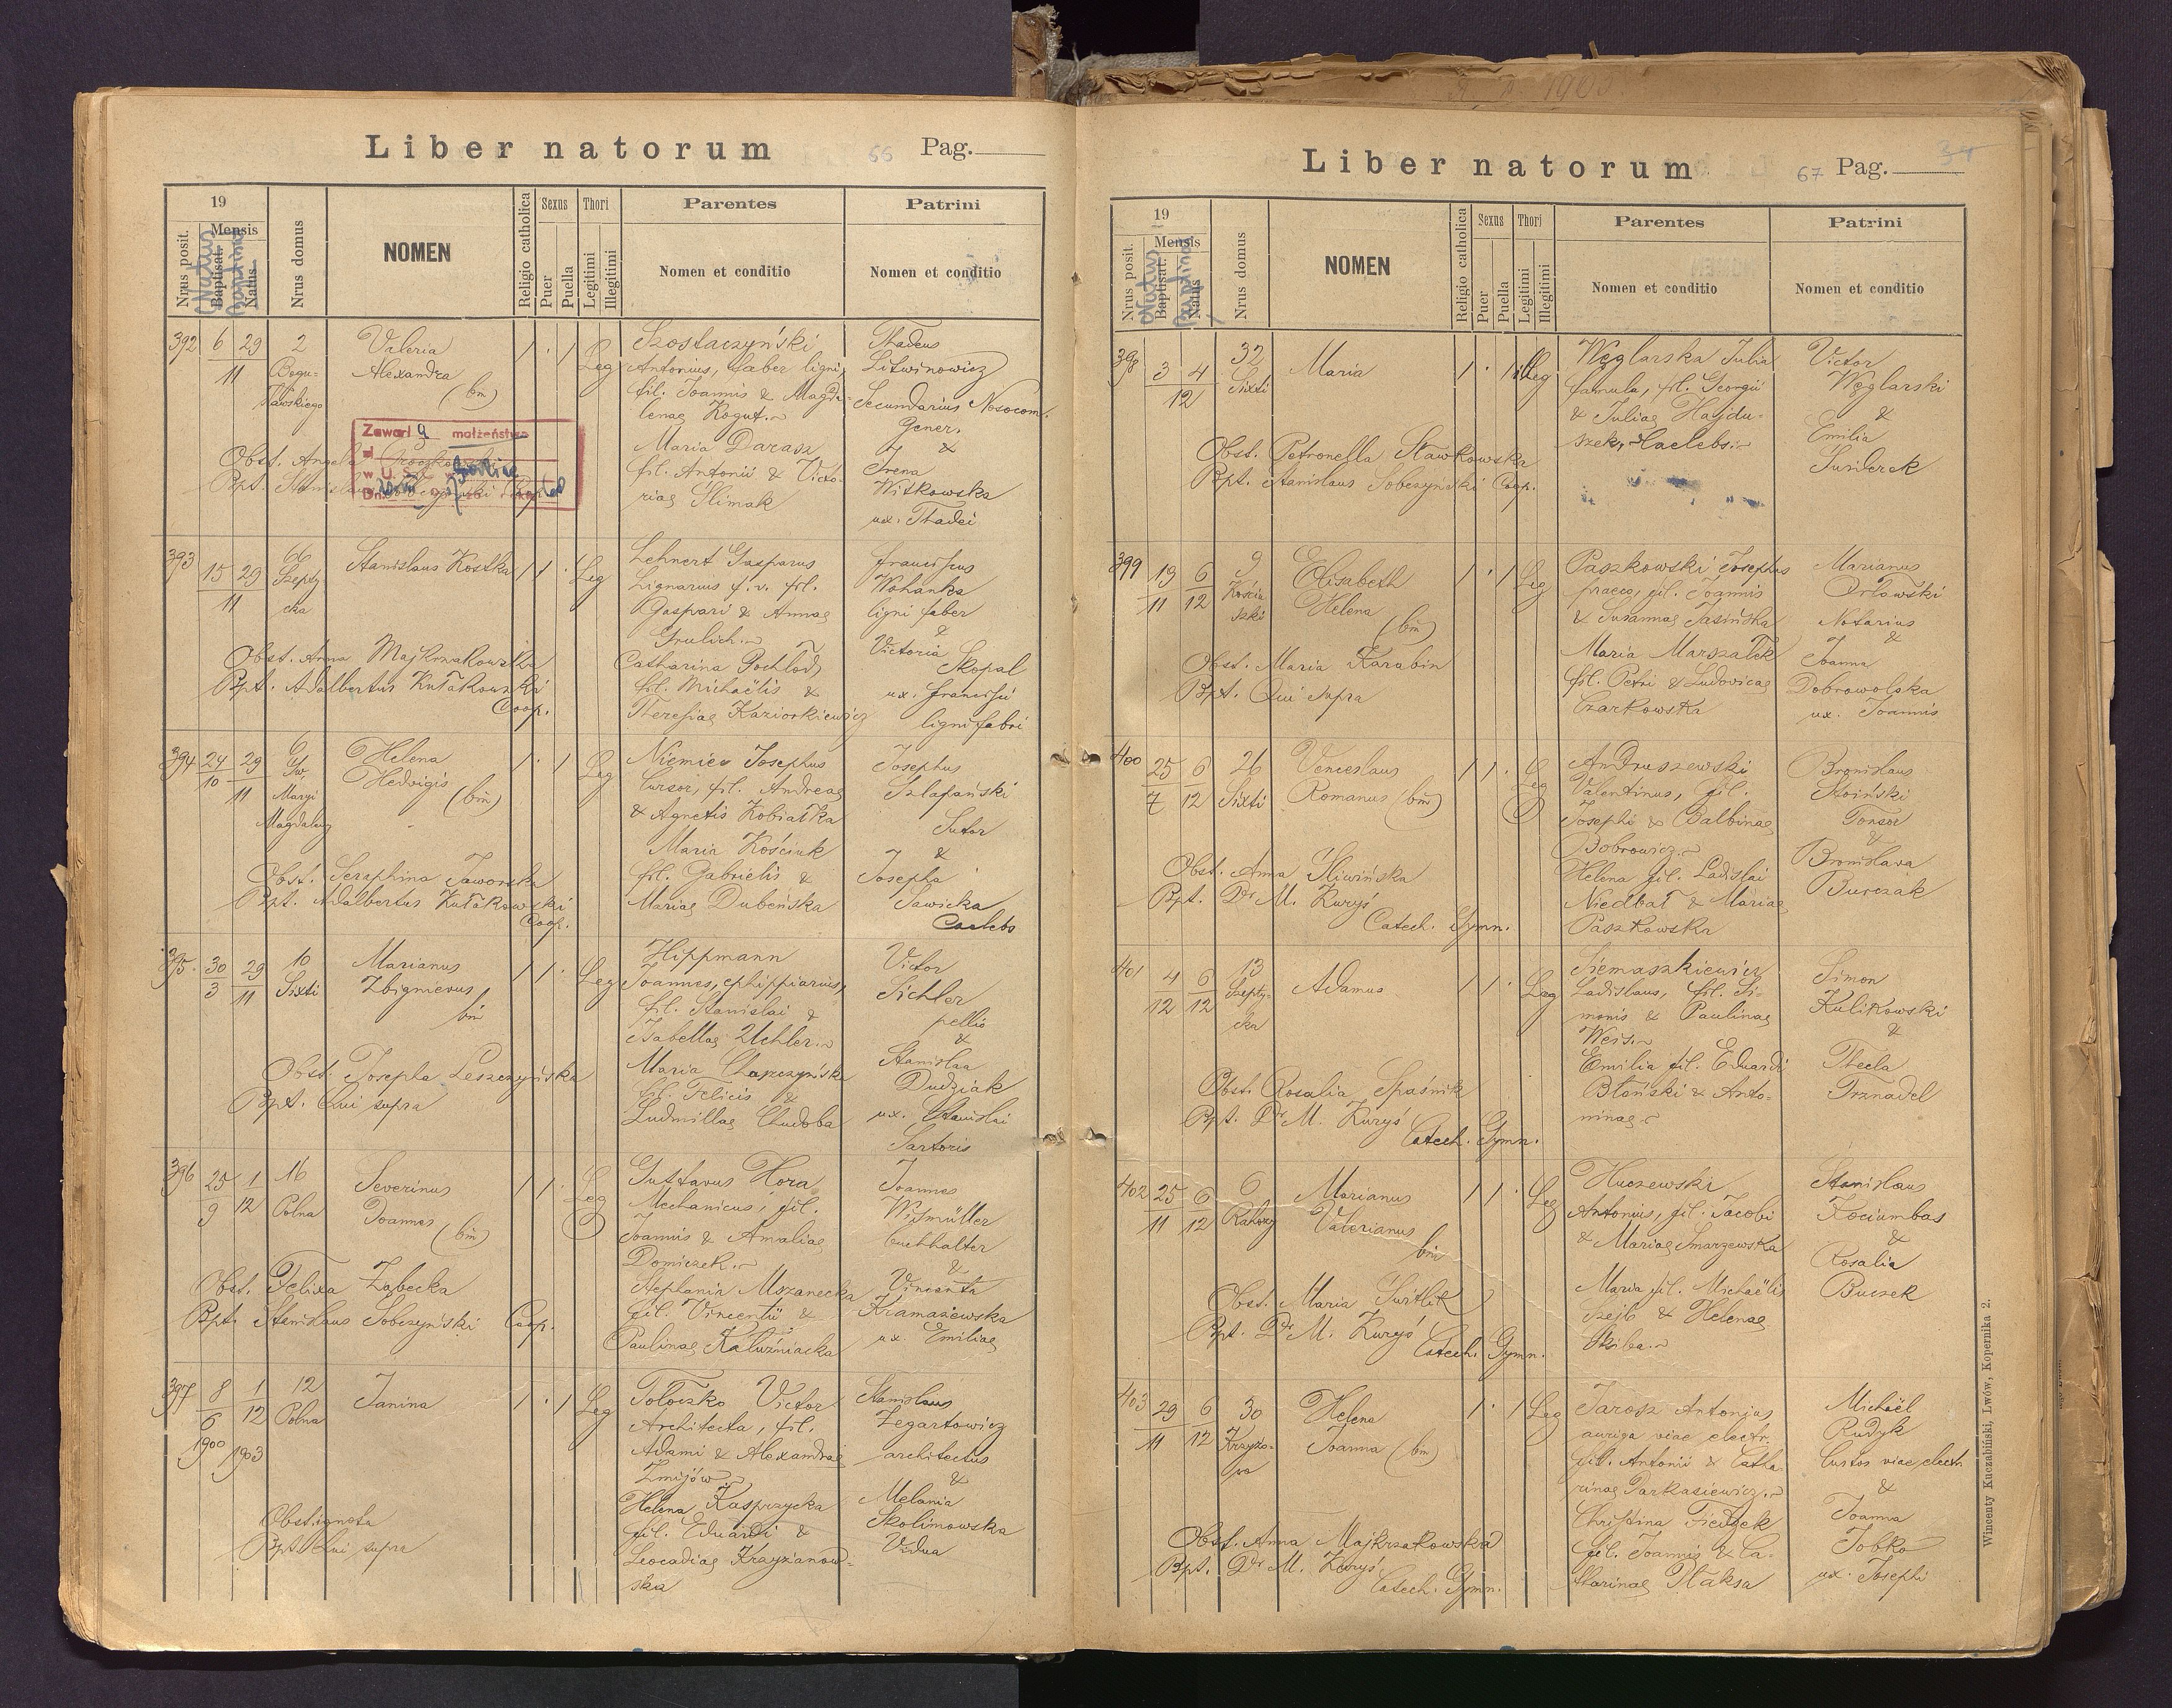 Liber natorum 66 Pag.
19
Nrus posit.
Mensis
Natus
Baptisat.
Natus
Nrus domus
NOMEN
Religio catholica
Sexus
Puer
Puella
Thori
Legitimi
Illegitimi
Parentes
Nomen et conditio
Patrini
Nomen et conditio
392 6 29 2 Valeria 1 · 1 Leg Szostaczyński Thadeus
11 Alexandra Antonius, faber ligni, Litwinowicz
(bm) fil. Joannis & Magda- Secundarius Nosocom.
lenae Kogut. Gener.
Zawarł a małżeństwo
w U. S. C.
Maria Darasz &
Obst. Angela fil. Antonii & Victo- Irena
riae Ślimak Witkowska
ux. Thadei
393 15 29 66 Stanislaus Kostka 1 1 · Leg Lehnert Gasparus Franciscus
11 Szepty- Lignarius f. v. fil. Wohanka
cka Gaspari & Annae ligni faber
Grulich. &
Obst. Anna Majkrzakowska Catharina Pochlod, Victoria Skopal
Bpt. Adalbertus Kułakowski fil. Michaëlis & ux. Francisci
Coop. Theresiae Kaziorkiewicz ligni fabri
394 24 29 6 Helena 1 · 1 Leg Niemiec Josephus Josephus
10 11 Św. Hedvigis Cursor, fil. Andreae Szlapański
Maryi (bm) & Agnetis Kobiałka Sutor
Magdaleny Maria Kościuk &
Obst. Seraphina Jaworska fil. Gabrielis & Josepha
Bpt. Adalbertus Kułakowski Mariae Dubeńska Sawicka
Coop. Caelebs
395 30 29 10 Marianus 1 1 · Leg Hippmann Victor
3 11 Sixti Zbignievus Joannes, ephippiarius, Sichler
bm fil. Stanislai & pellio
Isabellae Uchler. &
Obst. Josepha Leszczyńska Maria Stanislaa
Bpt. Qui supra fil. Felicis & Dudziak
Ludmillae Chudoba ux. Stanislai
Sartoris
396 25 1 16 Severinus 1 1 · Leg Gustavus Hora Joannes
9 12 Polna Joannes Mechanicus, fil. Witmüller
(bm) Joannis & Amaliae buchhalter
Domiczek. &
Obst. Felixa Ząbecka Stephania Mszanecka Vincenta
Bpt. Stanislaus Sobczyński Coop. fil. Vincentii & Kramazewska
Paulinae Kałużniacka ux. Emiliae
397 8 1 12 Janina 1 · 1 Leg Toloczko Victor Stanislaus
6 12 Polna Architecta, fil. Zegartowicz
1900 1903 Adami & Alexandrae architectus
Żmijów. &
Helena Kasprzycka Melania
Obst. ignota fil. Eduardi & Skolimowska
Bpt. Qui supra Leocadiae Krzyżanow- Vidua
ska
Liber natorum 67 Pag. 34
19
Nrus posit.
Mensis
Natus
Baptisat.
Natus
Nrus domus
NOMEN
Religio catholica
Sexus
Puer
Puella
Thori
Legitimi
Illegitimi
Parentes
Nomen et conditio
Patrini
Nomen et conditio
398 3 4 32 Maria 1 · 1 illeg Węglarska Julia Victor
12 Sixti famula, fil. Georgii Węglarski
& Juliae Hajdu- &
szek, Caelebs. Emilia
Obst. Petronella Sławkowska
Bpt. Stanislaus Sobczyński Coop.
399 19 6 9 Elisabeth 1 · 1 Leg Paszkowski Josephus Marianus
11 12 Kościu Helena praeco, fil. Joannis Orłowski
szki (bm) & Susannae Jasińska Notarius
Maria Marszałek &
Obst. Maria Karabin fil. Petri & Ludovicae Joanna
Bpt. Qui supra Czarkowska Dobrowolska
ux. Joannis
400 25 6 26 Venceslaus 1 1 · Leg Andruszewski Bronislaus
7 12 Sixti Romanus (bm) Valentinus, fil. Stoiński
Josephi & Balbinae Tonsor
Bobrowicz. &
Obst. Anna Śliwińska Helena fil. Ladislai Bronislava
Bpt. Dr M. Kuryś Niedbał & Mariae Burczak
Catech. Gymn. Paszkowska
401 4 6 13 Adamus 1 1 · Leg Siemaszkiewicz Simon
12 12 Szepty- Ladislaus, fil. Si- Kulikowski
cka monis & Paulinae &
Weis. Thecla
Obst. Rosalia Spaśnik Emilia fil. Eduardi Trznadel
Bpt. Dr M. Kuryś Błoński & Anto-
Catech. Gymn. ninae
402 25 6 6 Marianus 1 1 · Leg Huczewski Stanislaus
11 12 Rahozy Valerianus Antonius, fil. Jacobi Kociumbas
bm & Mariae Smarzewska &
Rosalia
Obst. Maria Maria fil. Michaëlis Buczek
Bpt. Dr M. Kuryś Szejb & Helenae
Catech. Gymn. Skiba.
403 29 6 30 Helena 1 · 1 Leg Jarosz Antonius Michaël
11 12 Krzyżo- Joanna (bm) auriga viae electr. Rudyk
wa fil. Antonii & Catha- Custos viae electr.
rinae Parkasiewicz. &
Obst. Anna Majkrzakowska Christina Joanna
Bpt. Dr M. Kuryś fil. Joannis & Ca- Jobko
Catech. Gymn. tharinae Płaksa ux. Josephi
Wincenty Kuczabiński, Lwów, Kopernika 2.